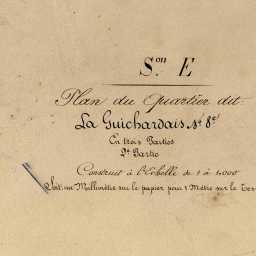 S.on E
Plan du Quartier dit
La Guichardais N.° 8.e
En trois Parties
2.e Partie
Construit à l'Echelle de 1 à 1,000
Soit un Millimètre sur le papier pour 1 Mètre sur le